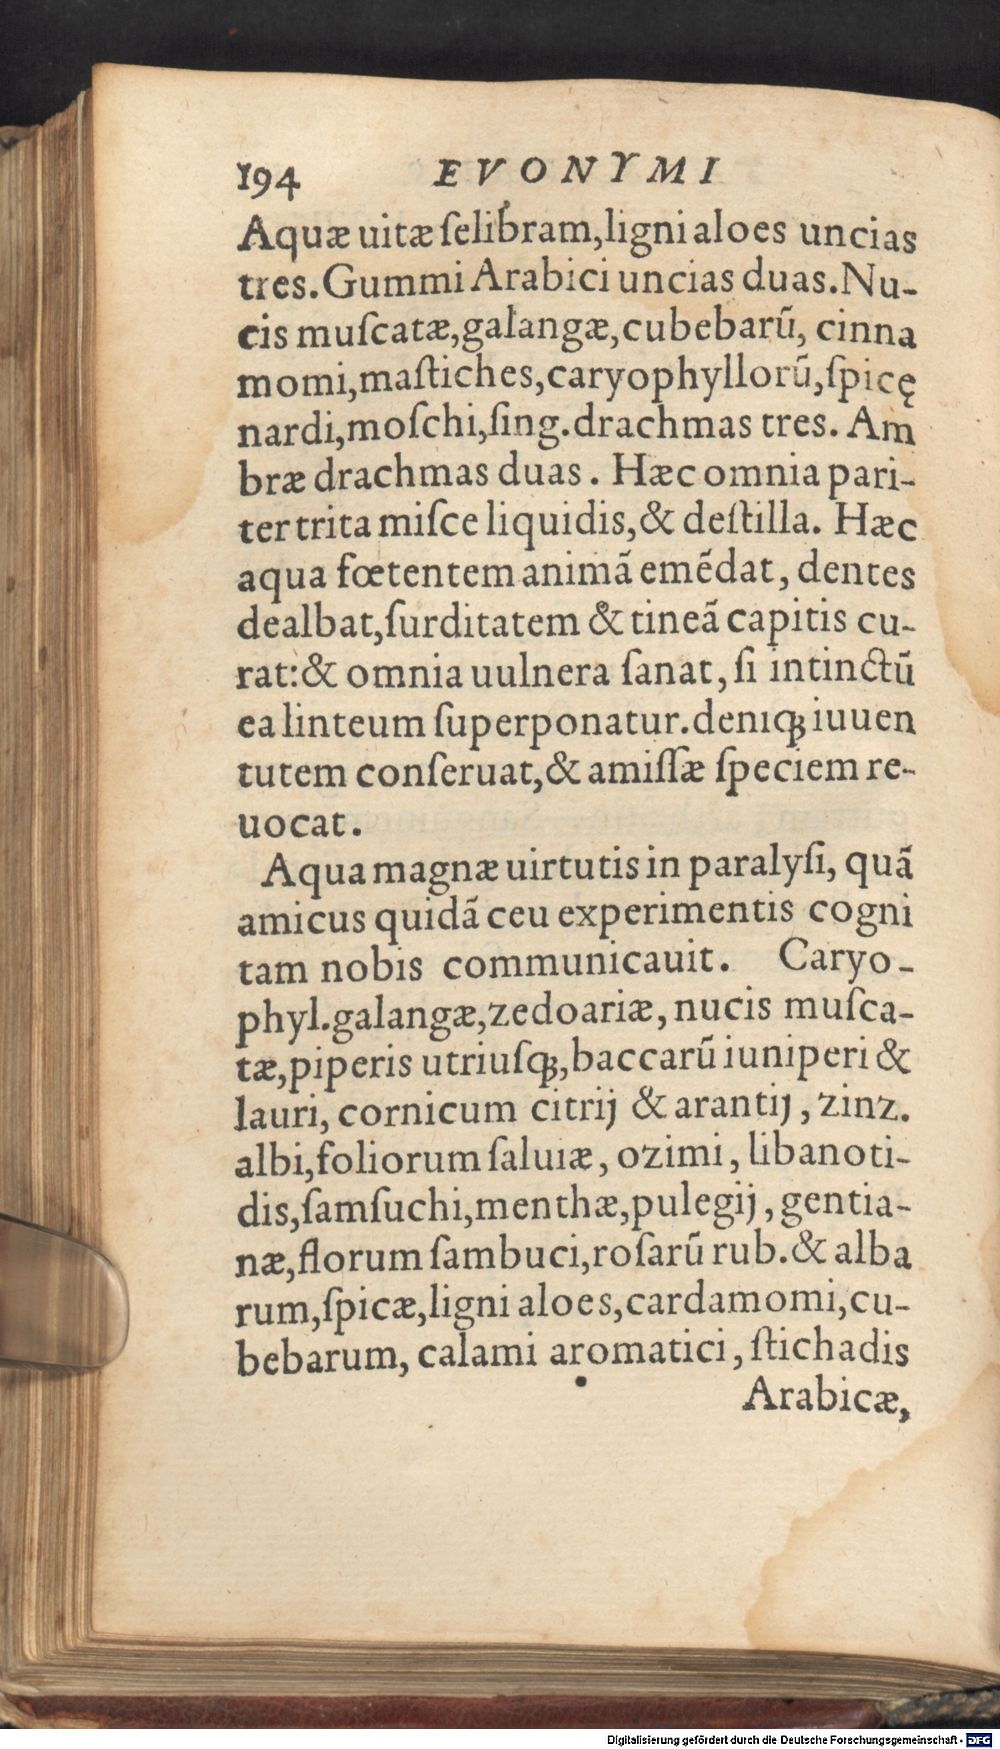 194 EVONYMI
Aquæ uitæ ſelibram,ligni aloes uncias
tres.Gummi Arabici uncias duas.Nu-
cis muſcatæ,galangæ,cubebarũ, cinna
momi,maſtiches,caryophyllorũ,ſpicę
nardi,moſchi,ſing.drachmas tres. Am
bræ drachmas duas. Hæc omnia pari-
ter trita miſce liquidis,& deſtilla. Hæc
aqua fœtentem animã emẽdat, dentes
dealbat,ſurditatem & tineã capitis cu-
rat:& omnia uulnera ſanat, ſi intinctũ
ea linteum ſuperponatur.deniqꝫ iuuen
tutem conſeruat,& amiſſæ ſpeciem re-
uocat.
Aqua magnæ uirtutis in paralyſi, quã
amicus quidã ceu experimentis cogni
tam nobis communicauit. Caryo-
phyl.galangæ,zedoariæ, nucis muſca-
tæ,piperis utriuſqꝫ,baccarũ iuniperi &
lauri, cornicum citrij & arantij, zinz.
albi,foliorum ſaluiæ, ozimi, libanoti-
dis,ſamſuchi,menthæ,pulegij, gentia-
næ,florum ſambuci,roſarũ rub.& alba
rum,ſpicæ,ligni aloes,cardamomi,cu-
bebarum, calami aromatici, ſtichadis
Arabicæ,
Digitalisierung gefördert durch die Deutsche Forschungsgemeinschaft - DFG